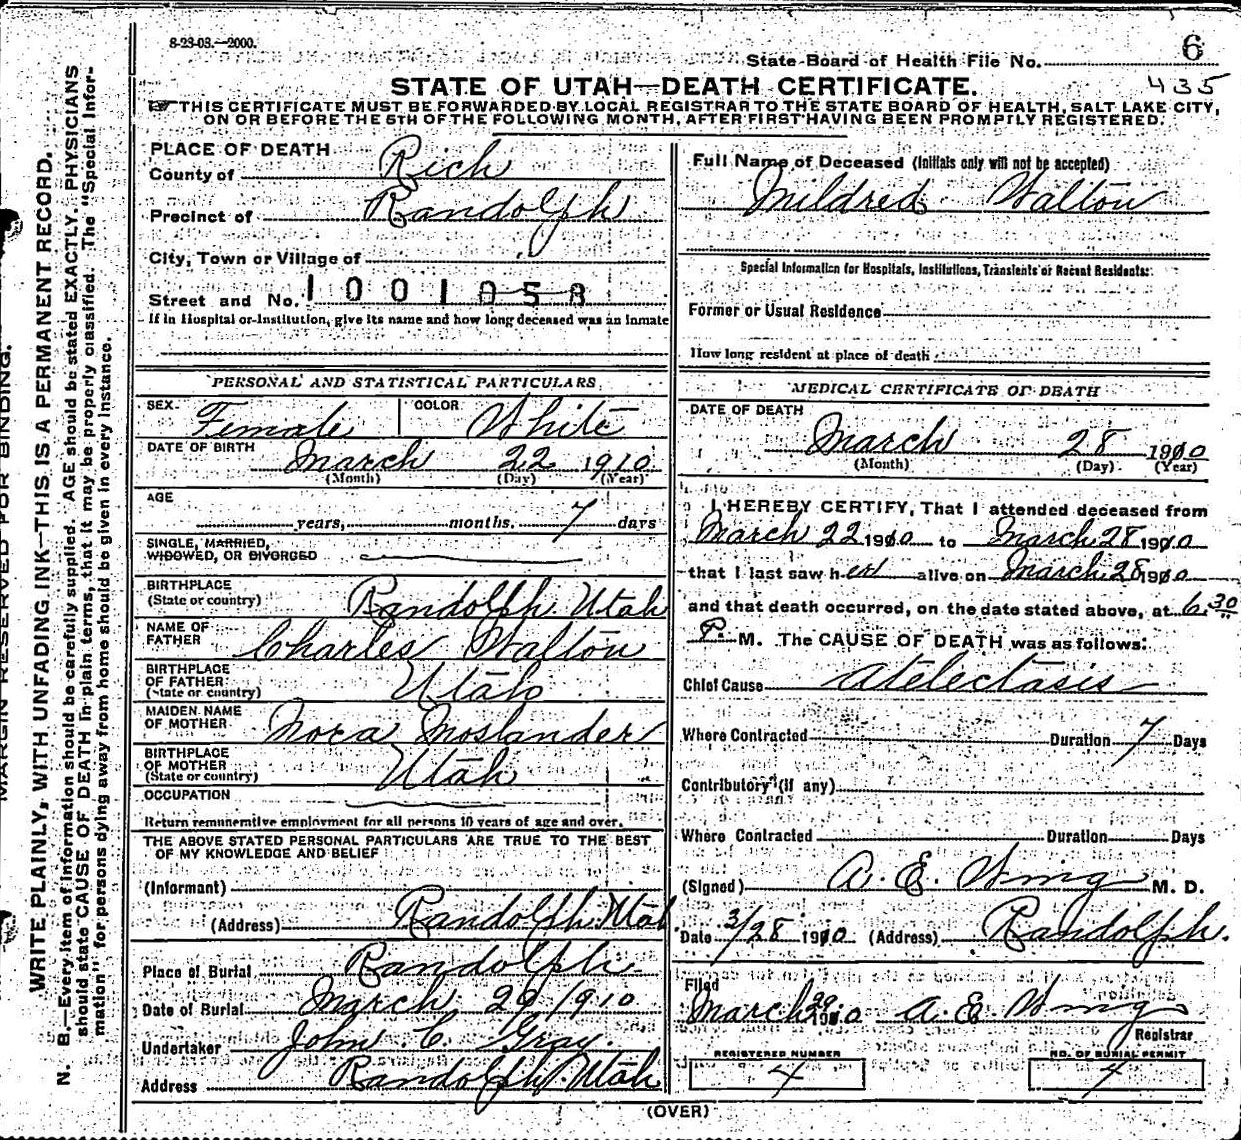 8-23-03.—2000.
State Board of Health File No. 6
435
STATE OF UTAH—DEATH CERTIFICATE.
THIS CERTIFICATE MUST BE FORWARDED BY LOCAL REGISTRAR TO THE STATE BOARD OF HEALTH, SALT LAKE CITY,
ON OR BEFORE THE 5TH OF THE FOLLOWING MONTH, AFTER FIRST HAVING BEEN PROMPTLY REGISTERED.
MARGIN RESERVED FOR BINDING.
WRITE PLAINLY, WITH UNFADING INK—THIS IS A PERMANENT RECORD.
N. B.—Every item of information should be carefully supplied. AGE should be stated EXACTLY. PHYSICIANS
should state CAUSE OF DEATH in plain terms, that it may be properly classified. The "Special Infor-
mation" for persons dying away from home should be given in every instance.
PLACE OF DEATH
County of Rich
Precinct of Randolph
City, Town or Village of
Street and No. 1001058
If in Hospital or Institution, give its name and how long deceased was an inmate
PERSONAL AND STATISTICAL PARTICULARS
SEX Female COLOR White
DATE OF BIRTH March 22 1910
(Month) (Day) (Year)
AGE
years, months. 7 days
SINGLE, MARRIED,
WIDOWED, OR DIVORCED
BIRTHPLACE
(State or country) Randolph Utah
NAME OF
FATHER Charles Walton
BIRTHPLACE
OF FATHER
(State or country) Utah
MAIDEN NAME
OF MOTHER Nora Moslander
BIRTHPLACE
OF MOTHER
(State or country) Utah
OCCUPATION
Return remunerative employment for all persons 10 years of age and over.
THE ABOVE STATED PERSONAL PARTICULARS ARE TRUE TO THE BEST
OF MY KNOWLEDGE AND BELIEF
(Informant)
(Address) Randolph Utah
Place of Burial Randolph
Date of Burial March 29 1910
Undertaker John C. Gray.
Address Randolph Utah
Full Name of Deceased (Initials only will not be accepted)
Mildred Walton
Special Information for Hospitals, Institutions, Transients or Recent Residents:
Former or Usual Residence
How long resident at place of death
MEDICAL CERTIFICATE OF DEATH
DATE OF DEATH
March 28 1910
(Month) (Day) (Year)
I HEREBY CERTIFY, That I attended deceased from
March 22 1910 to March 28 1910
that I last saw her alive on March 28 1910
and that death occurred, on the date stated above, at 6.30
P. M. The CAUSE OF DEATH was as follows:
Chief Cause Atelectasis
Where Contracted Duration 7 Days
Contributory (if any)
Where Contracted Duration Days
(Signed) A. E. Wing M. D.
Date 3/28 1910 (Address) Randolph.
Filed
March 29 1910 A. E. Wing
Registrar
REGISTERED NUMBER
4
NO. OF BURIAL PERMIT
4
(OVER)